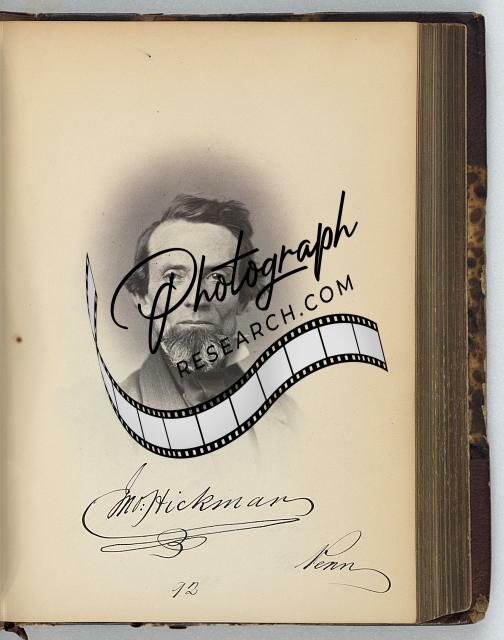 Photograph
RESEARCH.COM
Jno: Hickman
Penn
92